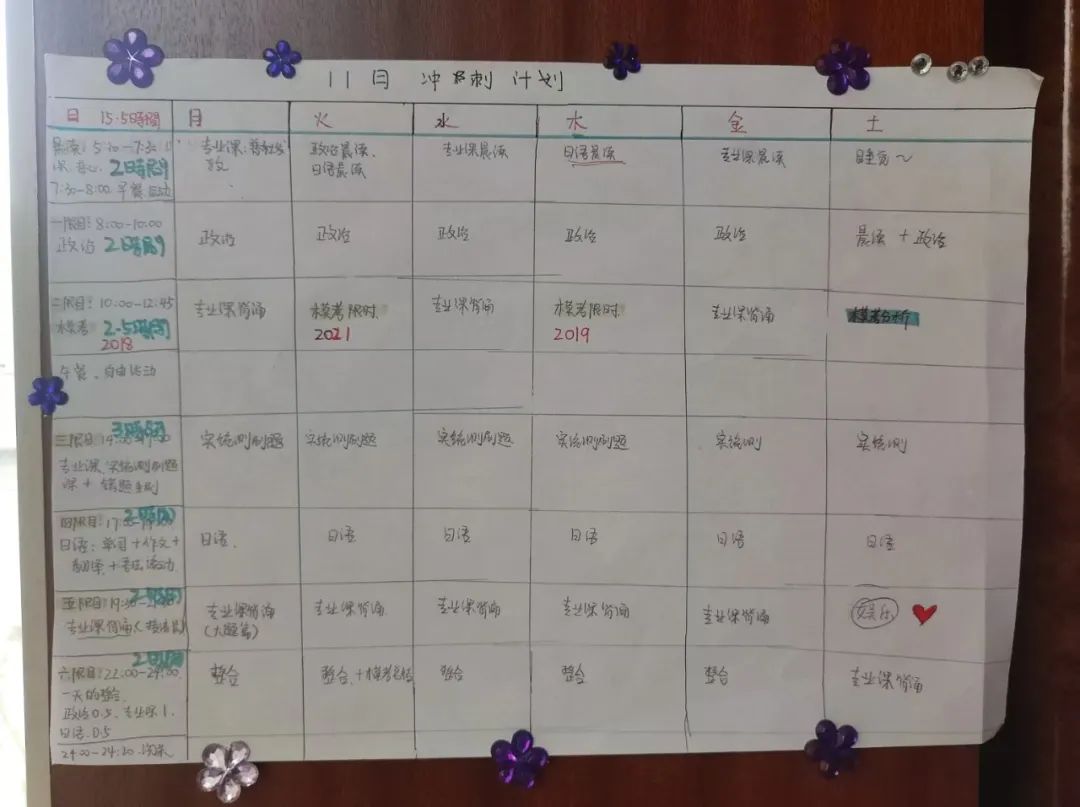 11月 冲刺 计划
日 15.5時間 月 火 水 木 金 土
晨读: 5:30-7:30
2時間
7:30-8:00 早餐 运动
专业课:
政
政治晨读、
日语晨读
专业课晨读
日语晨读
专业课晨读
睡觉~
一限目: 8:00-10:00
政治 2時間
政治
政治
政治
政治
政治
晨读 + 政治
二限目: 10:00-12:45
模考 2.5時間
2018
专业课背诵
模考限时
2021
专业课背诵
模考限时
2019
专业课背诵
模考分析
午餐、自由活动
3時間
三限目: 14:00-17:00
专业课、实统测刷题
课 + 错题
实统测刷题
实统测刷题
实统测刷题
实统测刷题
实统测
实统测
2時間
四限目: 17:
日语: 单词 + 作文 +
翻译 +
日语、
日语
日语
日语
日语
日语
2時間
五限目: 19:30-
专业课背诵
专业课背诵
(大题篇)
专业课背诵
专业课背诵
专业课背诵
专业课背诵
娱乐
2時間
六限目: 22:00-24:00
一天的整合、
政治0.5、专业课1、
日语0.5
整合
整合、+模考总结
整合
整合
整合
专业课背诵
24:00-24:20